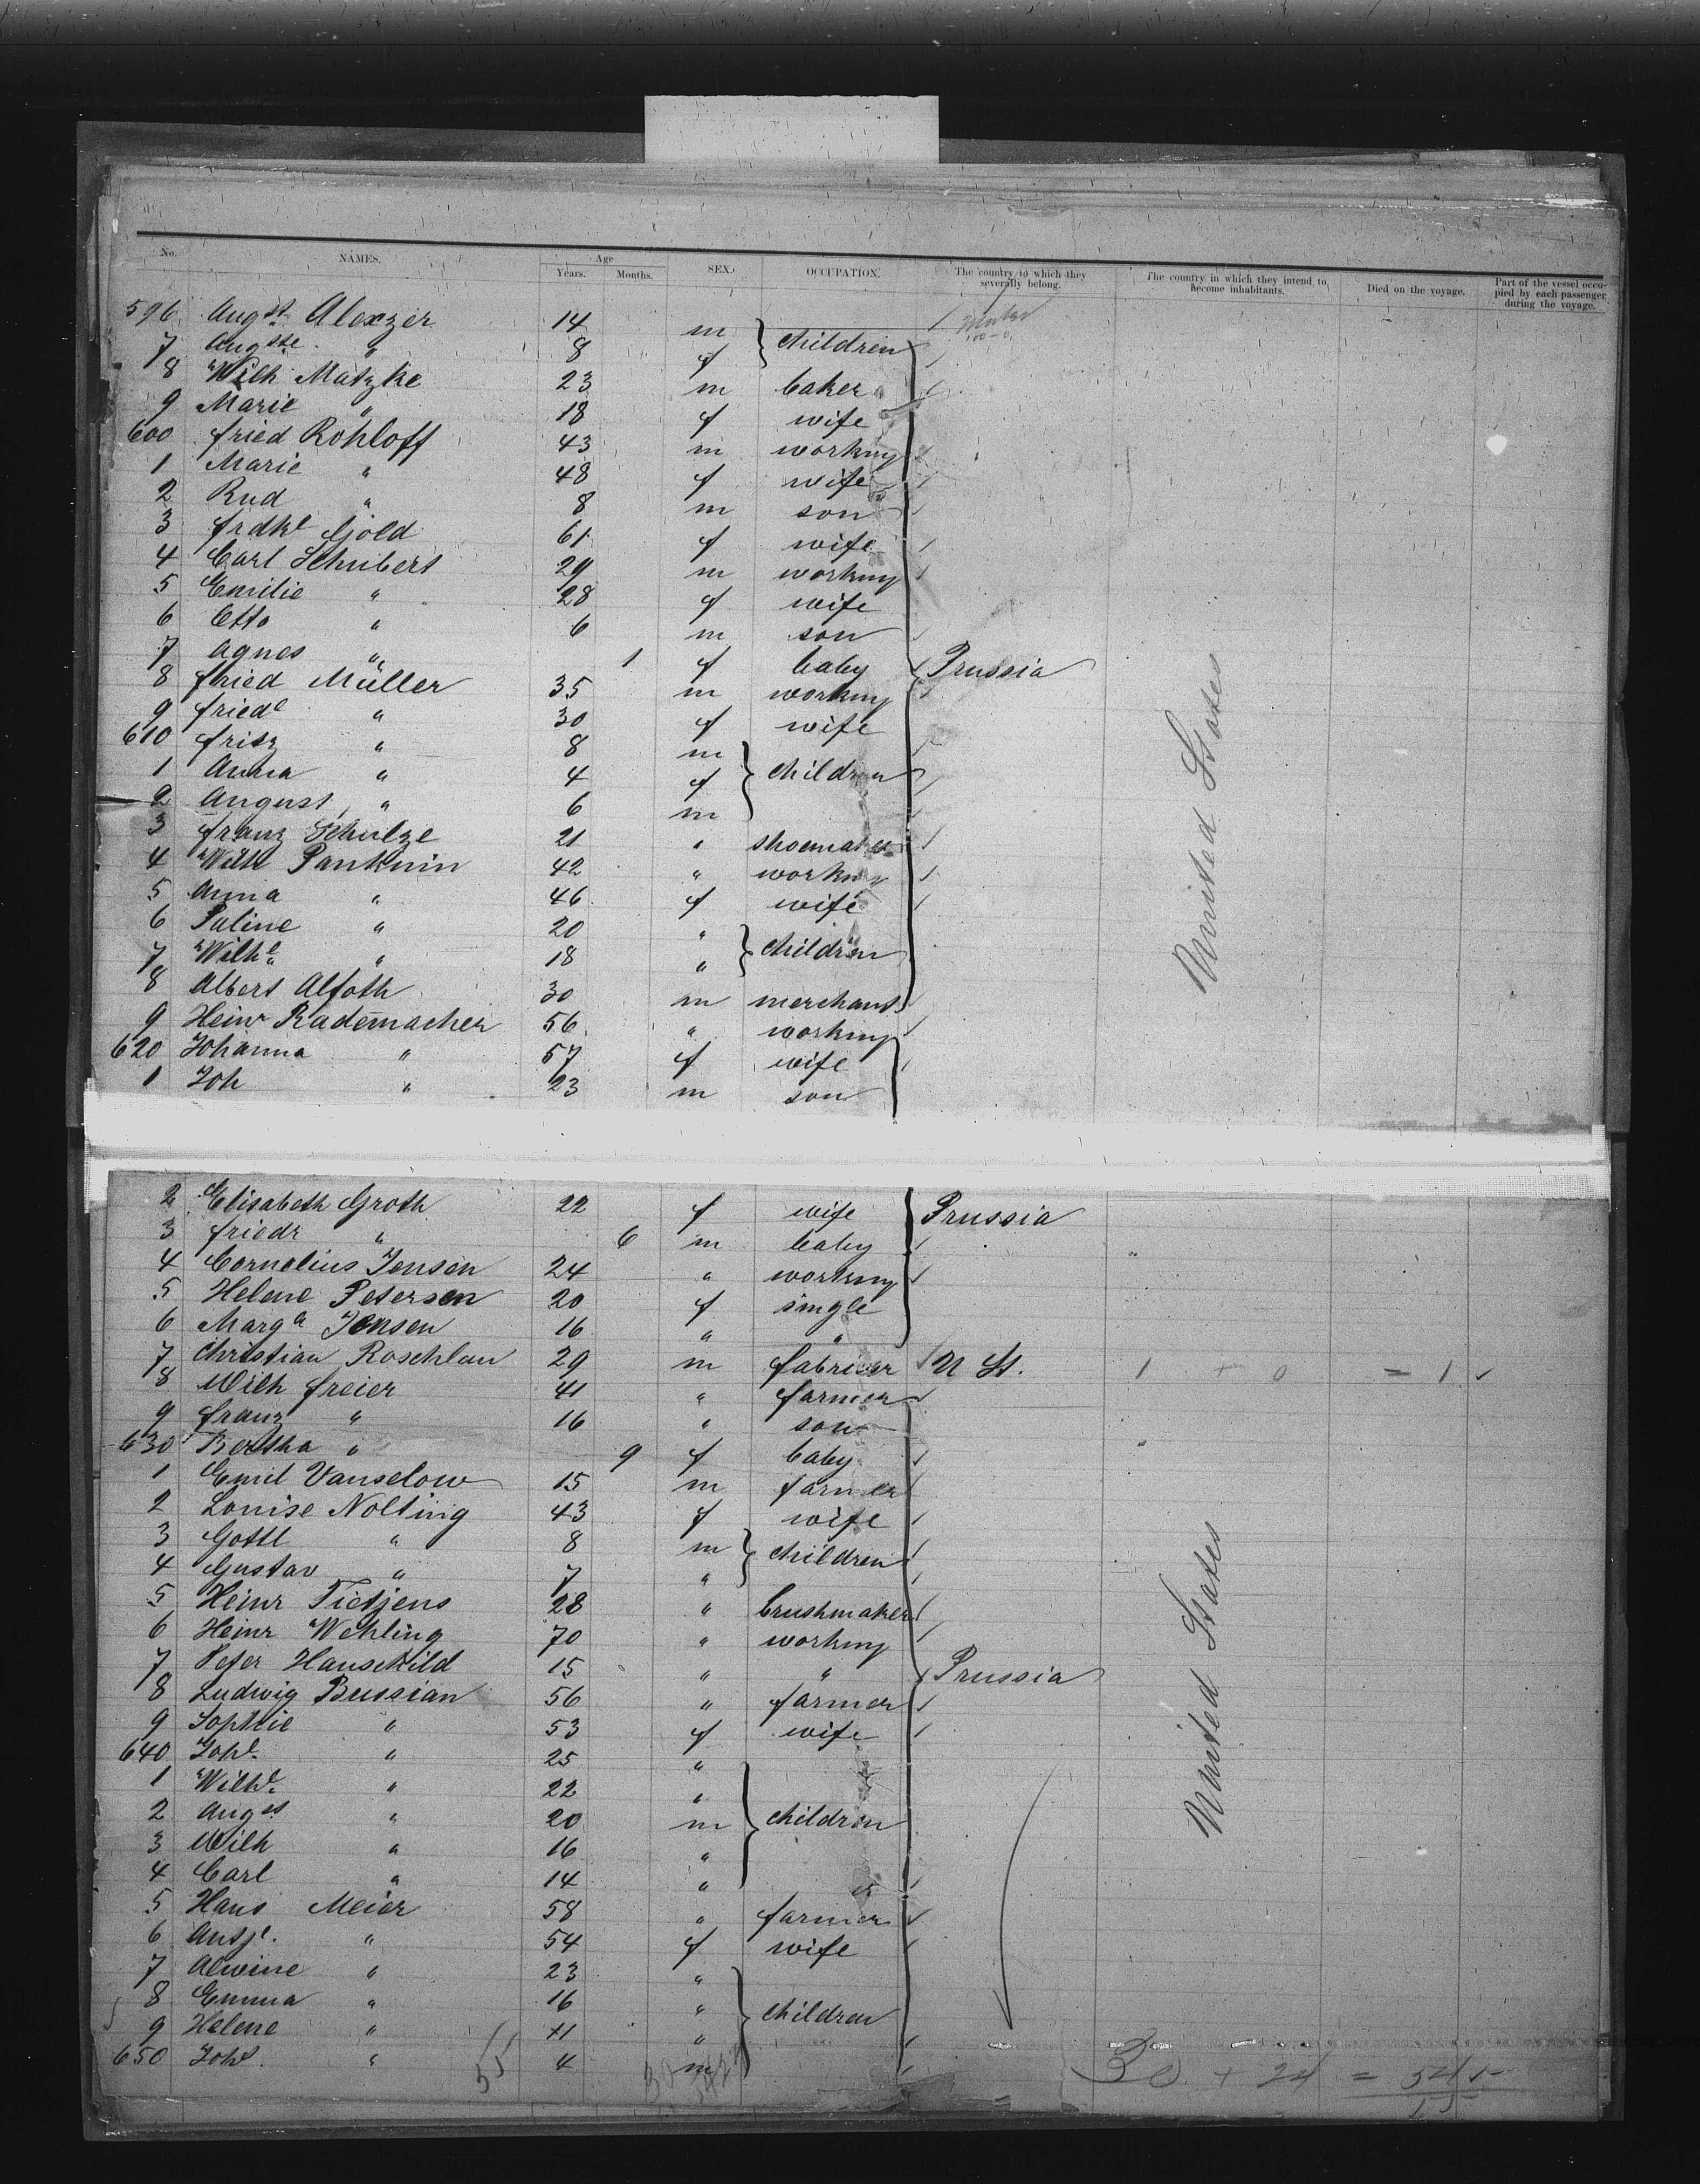 No. NAMES. Age Years. Months. SEX. OCCUPATION. The country to which they severally belong. The country in which they intend to become inhabitants. Died on the voyage. Part of the vessel occupied by each passenger during the voyage.
596 Augst Alexzer 14 m
children
7 Augste " 8 f
8 Wilh Matzke 23 m baker
9 Marie " 18 f wife
600 Fried Rohloff 43 m working
1 Marie " 48 f wife
2 Rud " 8 m son
3 Frdke Gold 61 f wife
4 Carl Schubert 29 m working
5 Emilie " 28 f wife
6 Otto " 6 m son
7 Agnes " 1 f baby Prussia
8 Fried Müller 35 m working
9 Friede " 30 f wife
610 Fritz " 8 m
1 Anna " 4 f children
2 August " 6 m
3 Franz Schulze 21 " shoemaker
4 Wilh Panknin 42 " working
5 Anna " 46 f wife
6 Paline " 20 "
children
7 Wilhe " 18 "
8 Albert Alfoth 30 m merchant
9 Heinr Rademacher 56 " working
620 Johanna " 57 f wife
1 Joh " 23 m son
United States
2 Elisabeth Groth 22 f wife Prussia
3 Friedr " 6 m baby "
4 Cornelius Jensen 24 " working
5 Helene Petersen 20 f single
6 Marga Jensen 16 " "
7 Christian Roschlau 29 m U St. 1 + 0 = 1
8 Wilh Freier 41 " farmer
9 Franz " 16 " son
630 Bertha " 9 f baby "
1 Emil Vanselow 15 m farmer
2 Louise Nolting 43 f wife
3 Gottl " 8 m
children
4 Gustav " 7 "
5 Heinr Tietjens 28 " brushmaker
6 Heinr Wehling 70 " working
7 Peter Hauschild 15 " " Prussia
8 Ludwig Bussian 56 " farmer
9 Sophie " 53 f wife
640 Johe " 25 "
1 Wilhe " 22 "
2 Augst " 20 m children
3 Wilh " 16 "
4 Carl " 14 "
5 Hans Meier 58 " farmer
6 Antje " 54 f wife
7 Alwine " 23 "
8 Emma " 16 "
children
9 Helene " 11 "
650 Johs " 4 m
United States
55
30 + 24 = 54